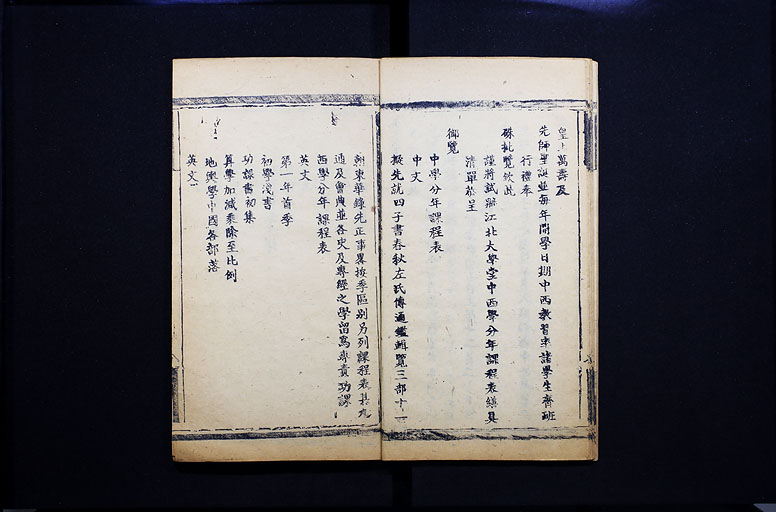 皇上萬壽及
先師聖誕並每年開學日期中西教習率諸學生齊班
行禮奉
硃批覽欽此
謹將試辦江北大學堂中西學分年課程表繕具
清單恭呈
御覽
中學分年課程表
中文
擬先就四子書春秋左氏傳通鑑輯覽三部十一
朝東華錄先正事畧按季區別另列課程表其九
通及會典並各史及專經之學留為專責功課
西學分年課程表
英文
第一年首季
初學淺書
功課書初集
算學加減乘除至比例
地輿學中國各部落
英文